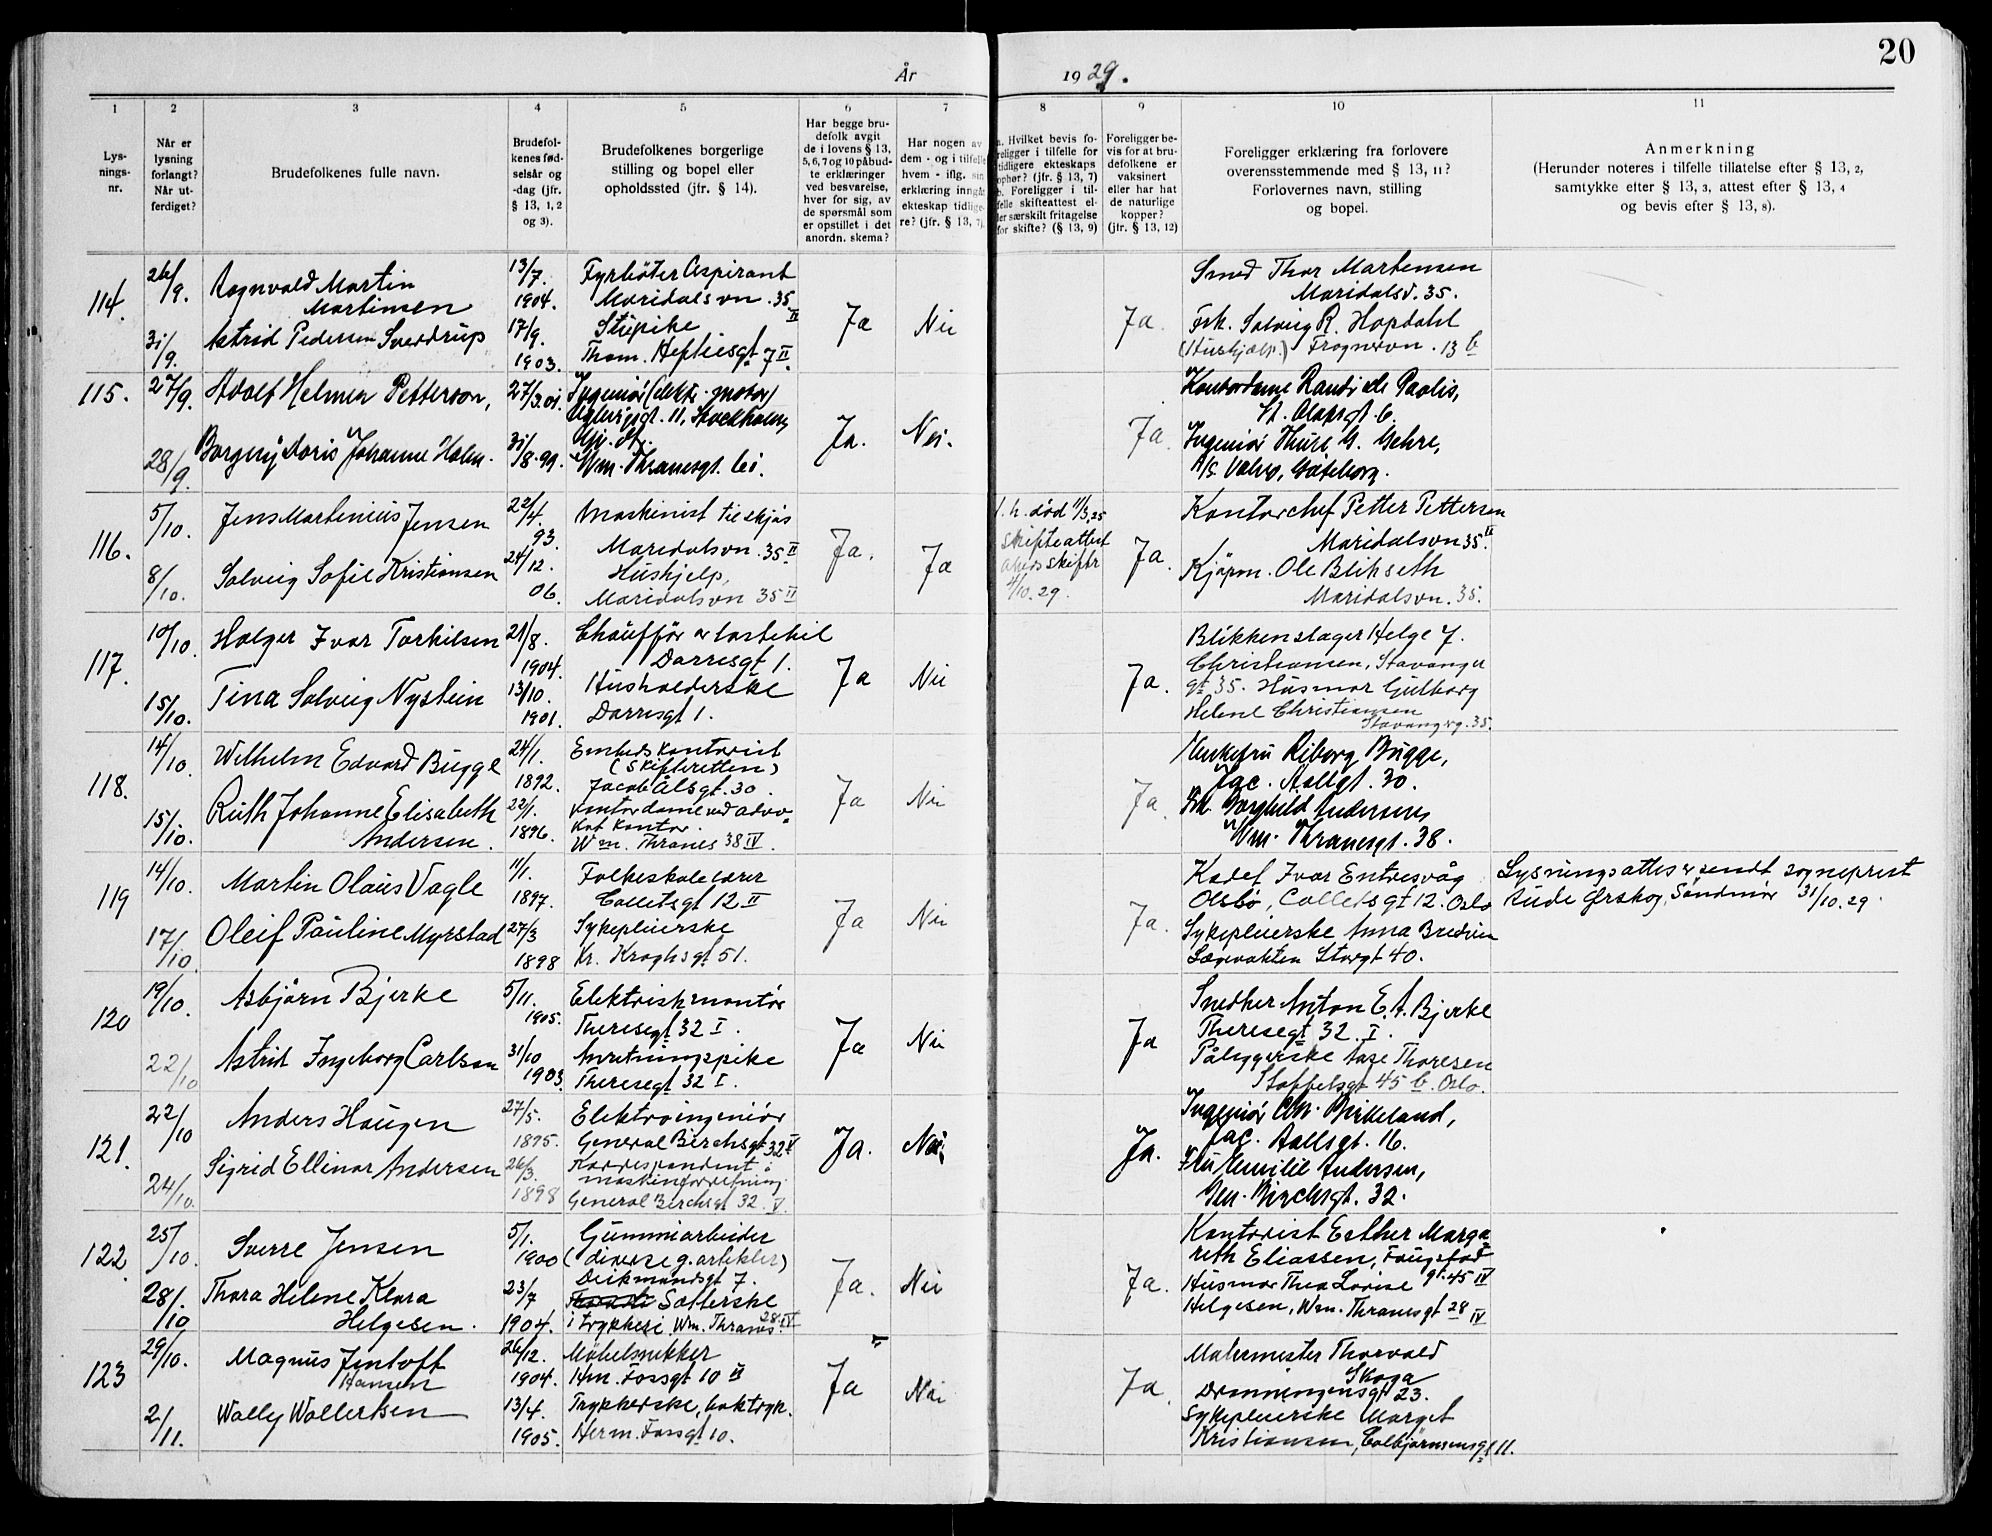 20
År 1929.
1 2 3 4 5 6 7 8 9 10 11
Lys-
nings-
nr.
Når er
lysning
forlangt?
Når ut-
ferdiget?
Brudefolkenes fulle navn.
Brudefol-
kenes fød-
selsår og
-dag (jfr.
§ 13, 1, 2
og 3).
Brudefolkenes borgerlige
stilling og bopel eller
opholdssted (jfr. § 14).
Har begge bru-
defolk avgit
de i lovens § 13,
5, 6, 7 og 10 påbud-
te erklæringer
ved besvarelse,
hver for sig, av
de spørsmål som
er opstillet i det
anordn. skema?
Har nogen av
dem - og i tilfelle
hvem - iflg. sin
erklæring inngåt
ekteskap tidlige-
re? (jfr. § 13, 7)
a. Hvilket bevis fo-
religger i tilfelle for
tidligere ekteskaps
ophør? (jfr. § 13, 7)
b. Foreligger i til-
felle skifteattest el-
ler særskilt fritagelse
for skifte? (§ 13, 9)
Foreligger be-
vis for at bru-
defolkene er
vaksinert
eller har hat
de naturlige
kopper?
(jfr. § 13, 12)
Foreligger erklæring fra forlovere
overensstemmende med § 13, 11?
Forlovernes navn, stilling
og bopel.
Anmerkning
(Herunder noteres i tilfelle tillatelse efter § 13, 2,
samtykke efter § 13, 3, attest efter § 13, 4
og bevis efter § 13, 8).
114.
26/9.
31/9.
Ragnvald Martin
Martinsen
Astrid Pedersen Sverdrup
13/7.
1904.
17/9.
1903.
Fyrbøter Aspirant
Maridalsvn. 35 IV
Stuepike
Thom. Heftiesgt 7 II.
Ja
Nei
Ja.
Smed Thor Martensen
Maridalsv. 35.
Frk. Solveig R. Hopdahl
(Hushjælp.) Frognervn. 13 b
115.
27/9.
28/9.
Adolf Helmer Petterson,
Borgny Doris Johanne Holm.
27/3.01.
31/8.99.
Ingeniør (elektr. motor)
11, Stockholm,
Wm. Thranesgt.
Ja.
Nei.
Ja.
Kontordame Randi de Paolis,
St. Olafsgt. 6.
Ingeniør Thure G. Gehre,
A/S. Volvo, Göteborg.
116.
5/10.
8/10.
Jens Martinius Jensen
Solveig Sofie Kristiansen
22/4.
93.
24/12.
06.
Maskinist til skjøs
Maridalsvn. 35 II
Hushjelp,
Maridalsvn 35 II
Ja.
Ja
død 11/3.25
Skifteattest
Oslo skifter
4/10.29.
Ja.
Kontorchef Petter Pettersen
Maridalsvn 35. II
Kjøpm. Ole Blikseth
Maridalsvn. 35.
117.
10/10.
15/10.
Holger Ivar Torkilsen
Tina Solveig Nystein
21/8.
1904.
13/10.
1901.
Chauffør av lastebil
Darresgt 1.
Husholderske
Darresgt 1.
Ja
Nei
Ja.
Blikkenslager Helge J.
Christiansen, Stavanger
gt 35. Husmor Gulborg
Helene Christiansen
Stavangerg. 35.
118.
14/10.
15/10.
Wilhelm Edvard Bugge
Ruth Johanne Elisabeth
Andersen.
24/1.
1892.
22/1.
1896.
Embedskontorist
(Skifteretten)
Jacob Alsgt. 30.
Kontordame ved advo-
kat kontor.
Wm. Thranes 38 IV.
Ja
Nei
Ja.
Enkefru Riborg Bugge,
Jac. Aallgt. 30.
Frk. Borghild Andersen,
Wm. Thranesgt. 38.
119
14/10.
17/10.
Martin Olaus Vagle
Oleif Pauline Myrstad
11/1.
1897.
27/3
1898
Folkeskolelærer
Colletsgt 12 II
Sykepleierske
Kr. Kroghsgt 51.
Ja
Nei
Ja.
Kadet Ivar Entresvåg
Olsbø, Colletsgt 12. Oslo
Sykepleierske Anna Bredvin
Lægevakten Storgt 40.
Lysningsattest sendt sogneprest
Rude Ørskog, Søndmør 31/10.29.
120
19/10.
22/10
Asbjørn Bjerke
Astrid Ingeborg Carlson
5/11.
1905.
31/10
1903.
Elektriskmontør
Theresegt 32 I.
Anretningspike
Theresegt 32 I.
Ja
Nei
Ja
Snedker Anton E. A. Bjerke
Theresegt 32. I.
Påleggerske Aase Thoresen
Stoffelsgt 45 b. Oslo.
121.
22/10
24/10.
Anders Haugen
Sigrid Ellinor Andersen
27/5.
1895.
26/3.
1898
Elektroingeniør
General Birchsgt. 32 V
Korrespondent i
maskinforretning.
General Berchsgt 32. V.
Ja.
Nei.
Ja.
Ingeniør Chr. Birkeland,
Jac. Aallsgt. 16.
Fru Emilie Andersen,
Gen. Birchsgt. 32.
122.
25/10.
28/10
Sverre Jensen
Thora Helene Klara
Helgesen.
5/1.
1900
23/7
1904.
Gummiarbeider
(diverse g. artikler)
Deikmandsgt 7.
Sætterske
i trykkeri. Wm. Thranes 28 IV
Ja.
Nei
Ja.
Kontorist Esther Marga
reth Eliassen, Fougstad
Husmor Thea Lovise gt. 45 IV
Helgesen, Wm. Thranesgt 28 IV
123
29/10.
2/11.
Magnus Jentoft
Hansen
Wally Wallertsen
26/12.
1904.
13/4.
1905.
Møbelsnekker
Hm. Fossgt 10 II
Trykkerske, boktryk.
Herm. Fossgt 10.
Ja
Nei
Ja.
Malermester Thorvald
Skoga
Dronningensgt 23.
Sykepleierske Marget
Kristiansen, Colbjørnsensgt 11.